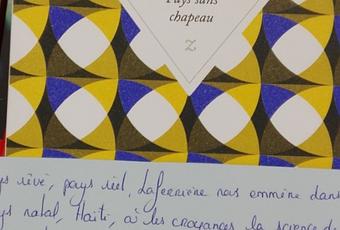 Pays sans
chapeau
Z
ys rêvé, pays réel, Laferrière nous emmène dans
ys natal, Haïti, où les croyances, la science d